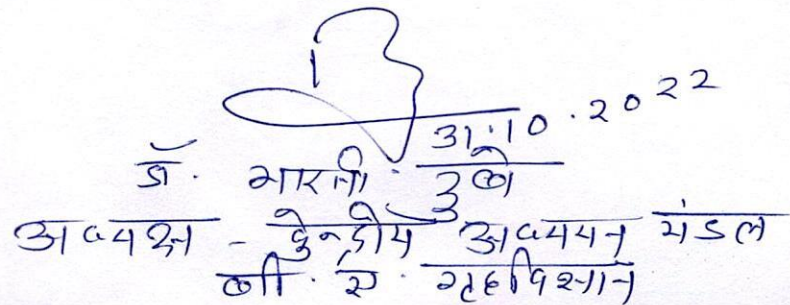 31.10.2022
डॉ. भारती दुबे
अध्यक्ष - केन्द्रीय अध्ययन मंडल
बी. ए. गृहविज्ञान